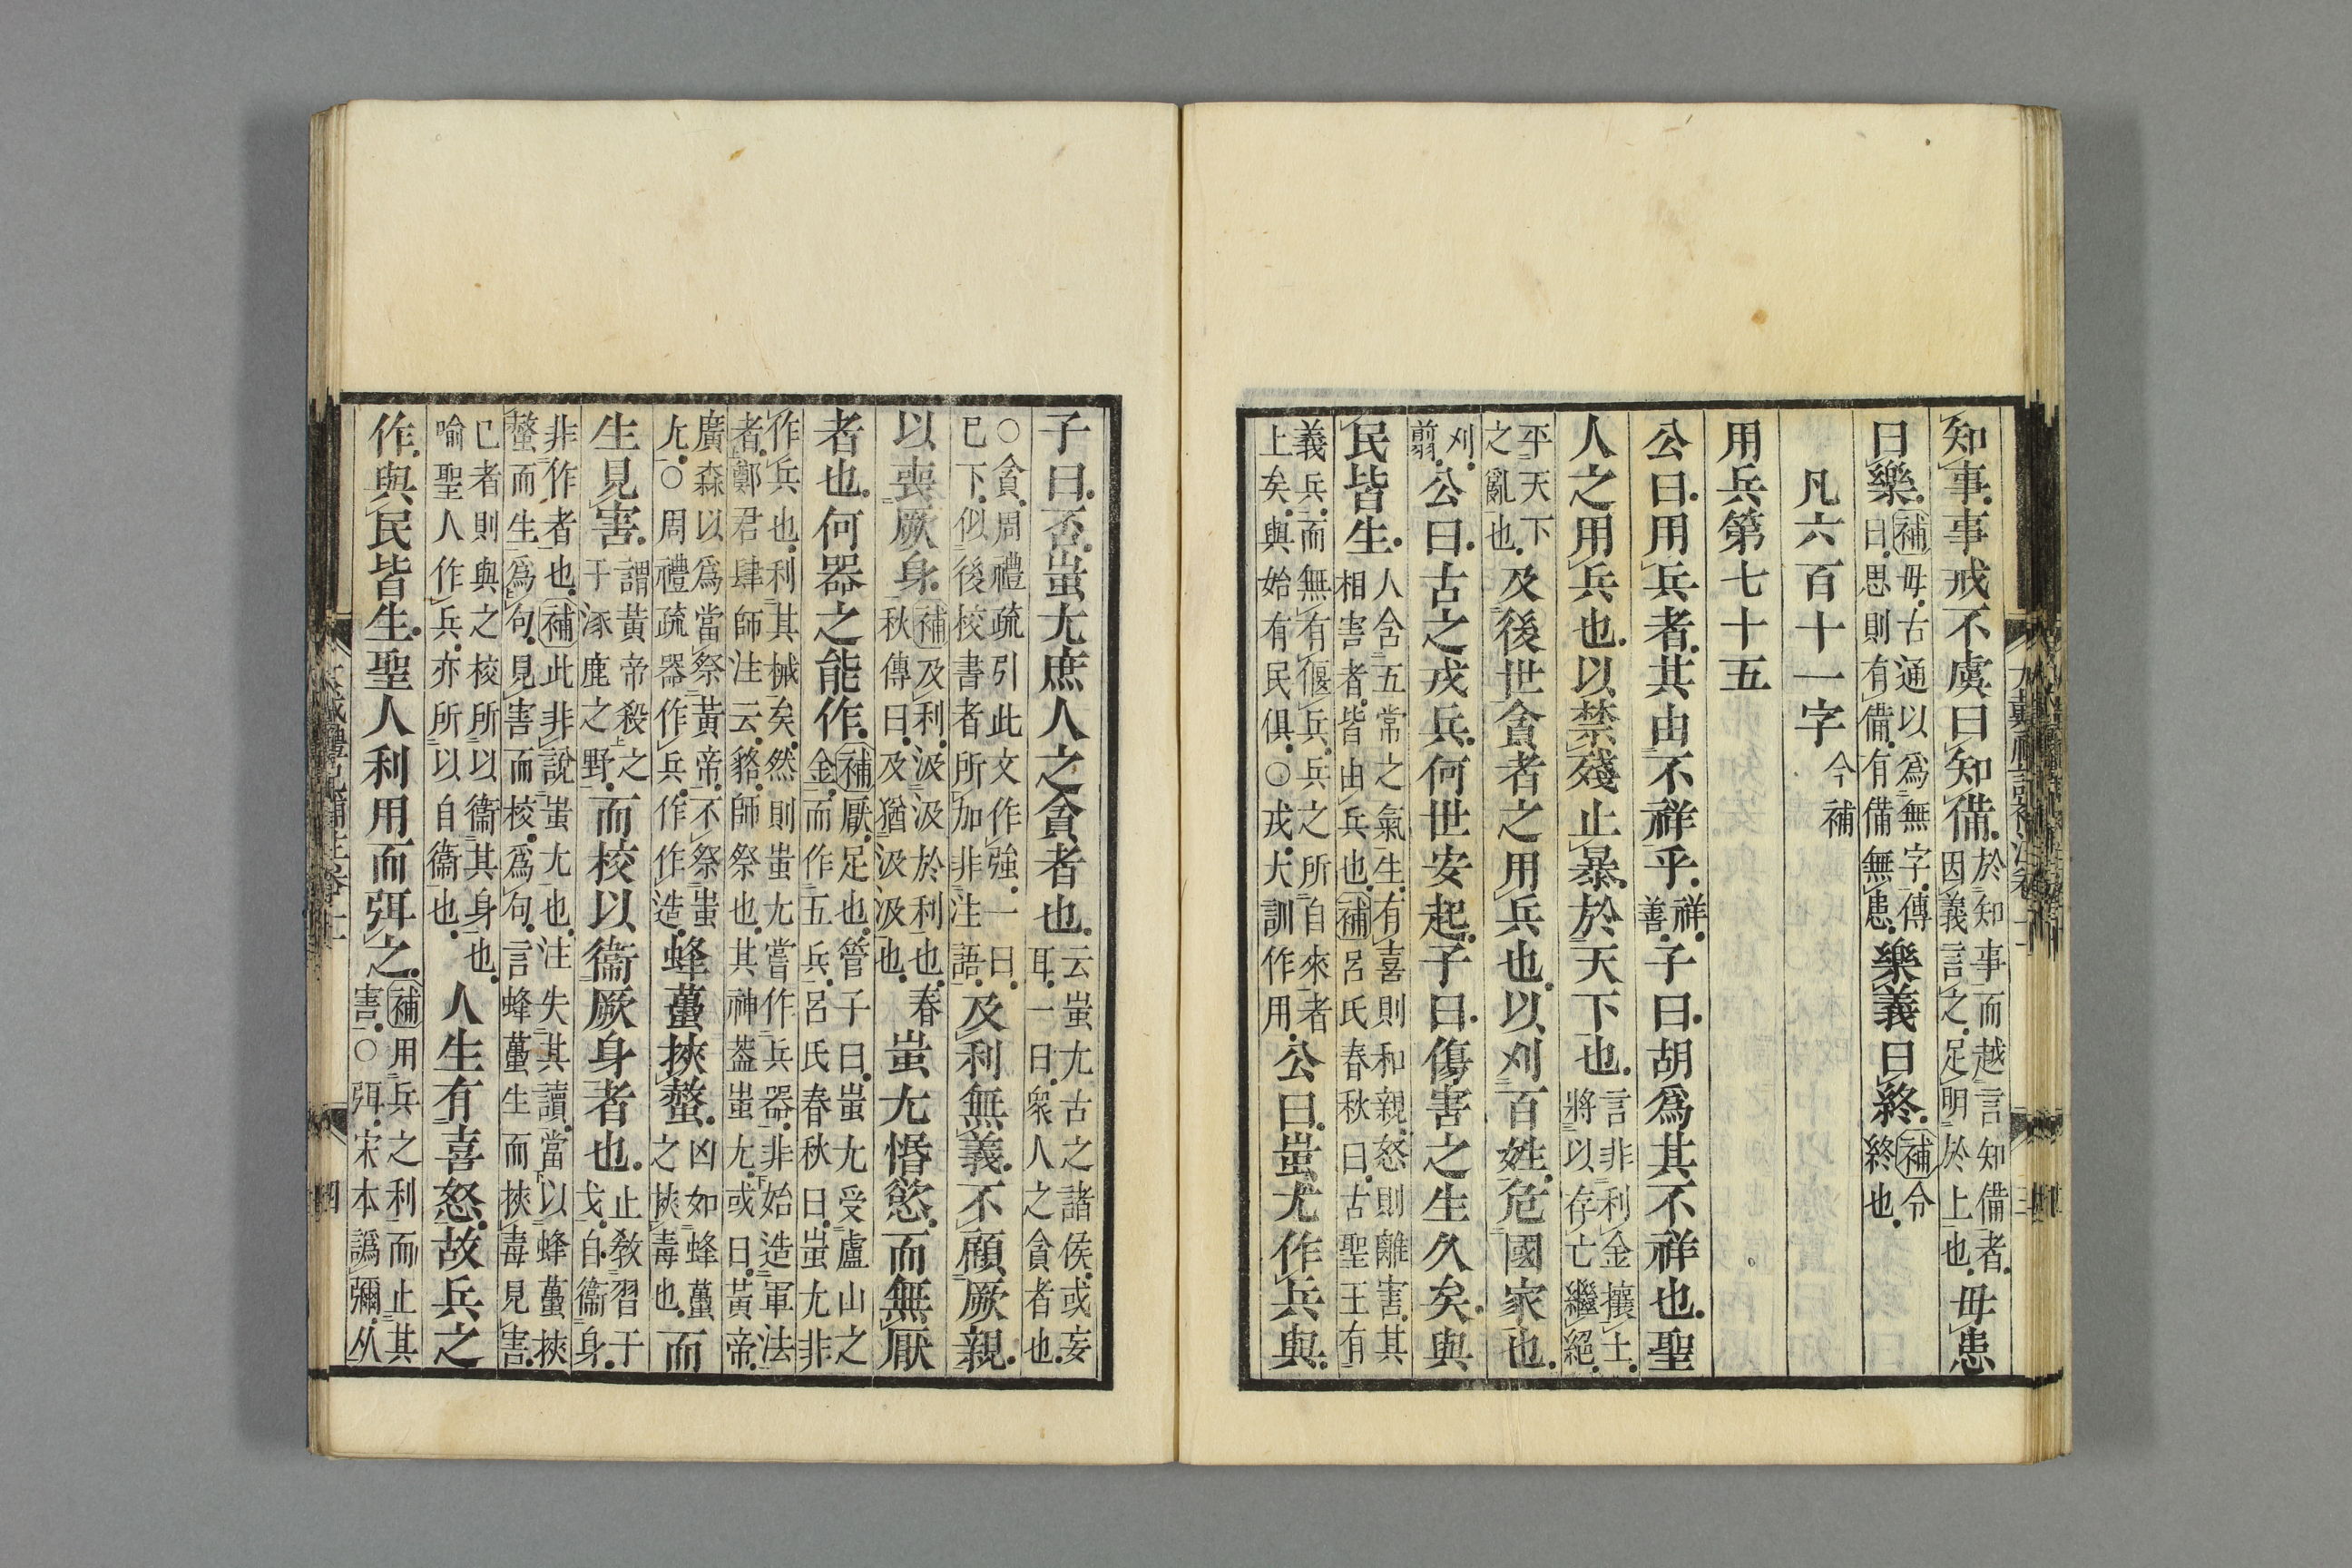 知事事戒不虞曰知備於知事而越言知備者因義言之足明於上也毋患
曰樂補毋古通以爲無字傳曰思則有備有備無患樂義曰終補令終也
凡六百十一字今補
用兵第七十五
公曰用兵者其由不祥乎祥善子曰胡爲其不祥也聖
人之用兵也以禁殘止暴於天下也言非利金攘土將以存亡繼絕
平天下之亂也及後世貪者之用兵也以刈百姓危國家也
刈翦公曰古之戎兵何世安起子曰傷害之生久矣與
民皆生人含五常之氣生有喜則和親怒則離害其相害者皆由兵也補呂氏春秋曰古聖王有
義兵而無有偃兵兵之所自來者上矣與始有民俱○戎大訓作用公曰蚩尤作兵與
子曰否蚩尤庶人之貪者也云蚩尤古之諸侯或妄耳一曰衆人之貪者也
○貪周禮疏引此文作強一曰巳下似後校書者所加非注語及利無義不顧厥親
以喪厥身補及利汲汲於利也春秋傳曰及猶汲汲也蚩尤惛慾而無厭
者也何器之能作補厭足也管子曰蚩尤受盧山之金而作五兵呂氏春秋曰蚩尤非
作兵也利其械矣然則蚩尤嘗作兵器非始造軍法者鄭君肆師注云貉師祭也其神葢蚩尤或曰黃帝
廣森以爲當祭黃帝不祭蚩尤○周禮疏器作兵作作造蜂蠆挾螫凶如蜂蠆之挾毒也而
生見害謂黃帝殺之于涿鹿之野而校以衞厥身者也止敎習于戈自衞身
非作者也補此非說蚩尤也注失其讀當以蜂蠆挾螫而生爲句見害而校爲句言蜂蠆生而挾毒見害
已者則與之校所以衞其身也喻聖人作兵亦所以自衞也人生有喜怒故兵之
作與民皆生聖人利用而弭之補用兵之利而止其害○弭宋本譌彌从